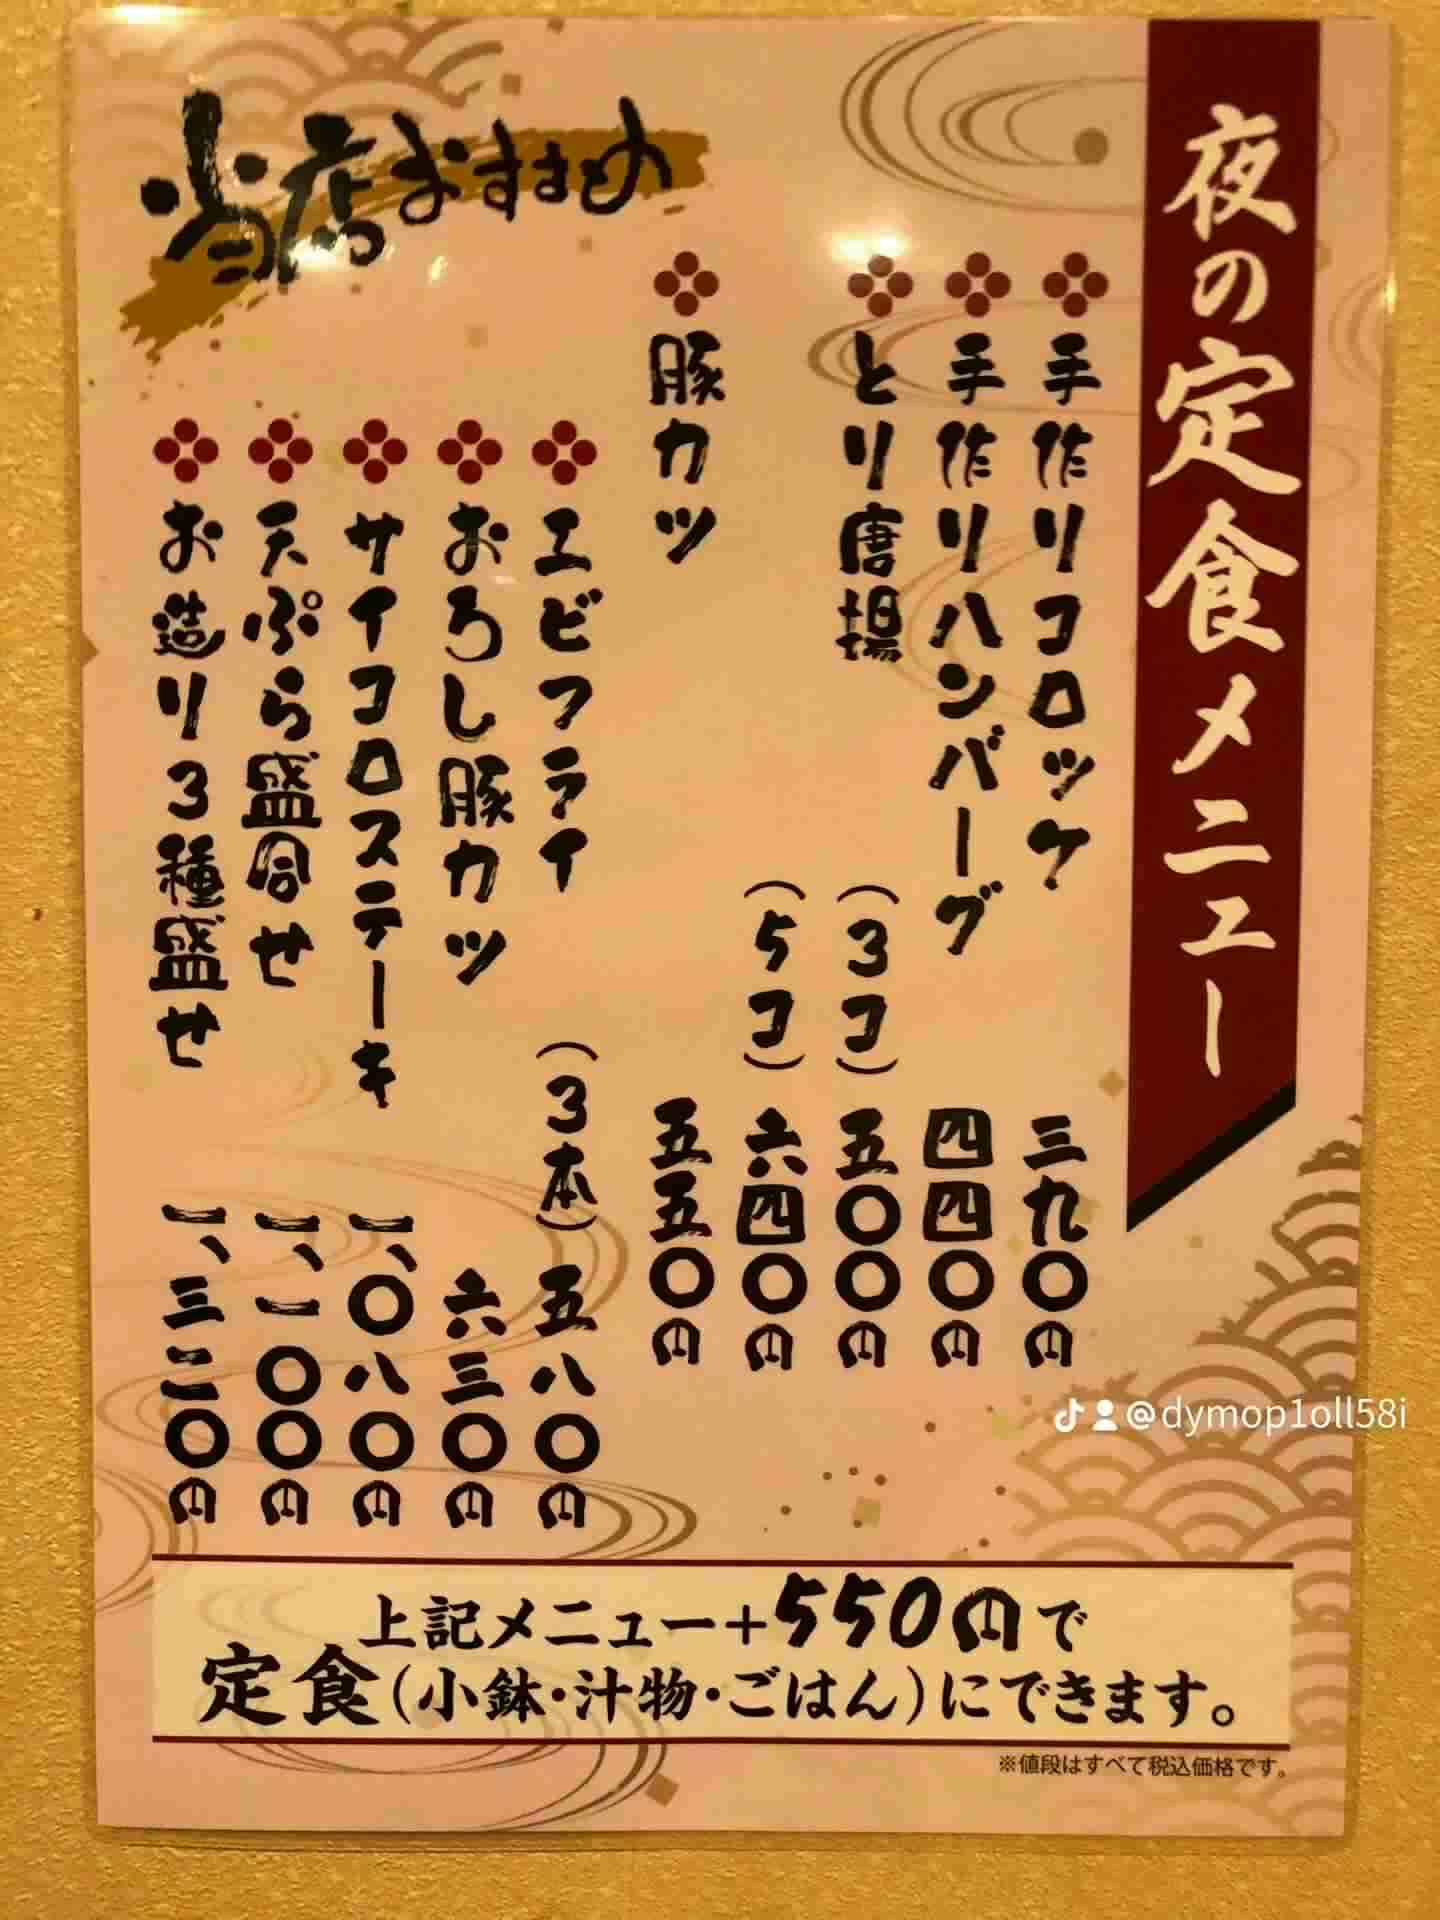 夜の定食メニュー
手作りコロッケ 三九〇円
手作りハンバーグ 四四〇円
とり唐揚 (3コ) 五〇〇円
(5コ) 六四〇円
豚カツ 五五〇円
当店おすすめ
エビフライ (3本) 五八〇円
おろし豚カツ 六三〇円
サイコロステーキ 一、〇八〇円
天ぷら盛合せ 一、一〇〇円
お造り3種盛せ 一、三二〇円
上記メニュー+550円で
定食(小鉢・汁物・ごはん)にできます。
※値段はすべて税込価格です。
@dymop1oll58i